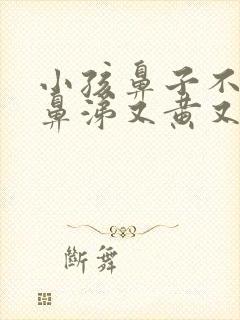 小孩鼻子不
鼻涕又黄又
断舞